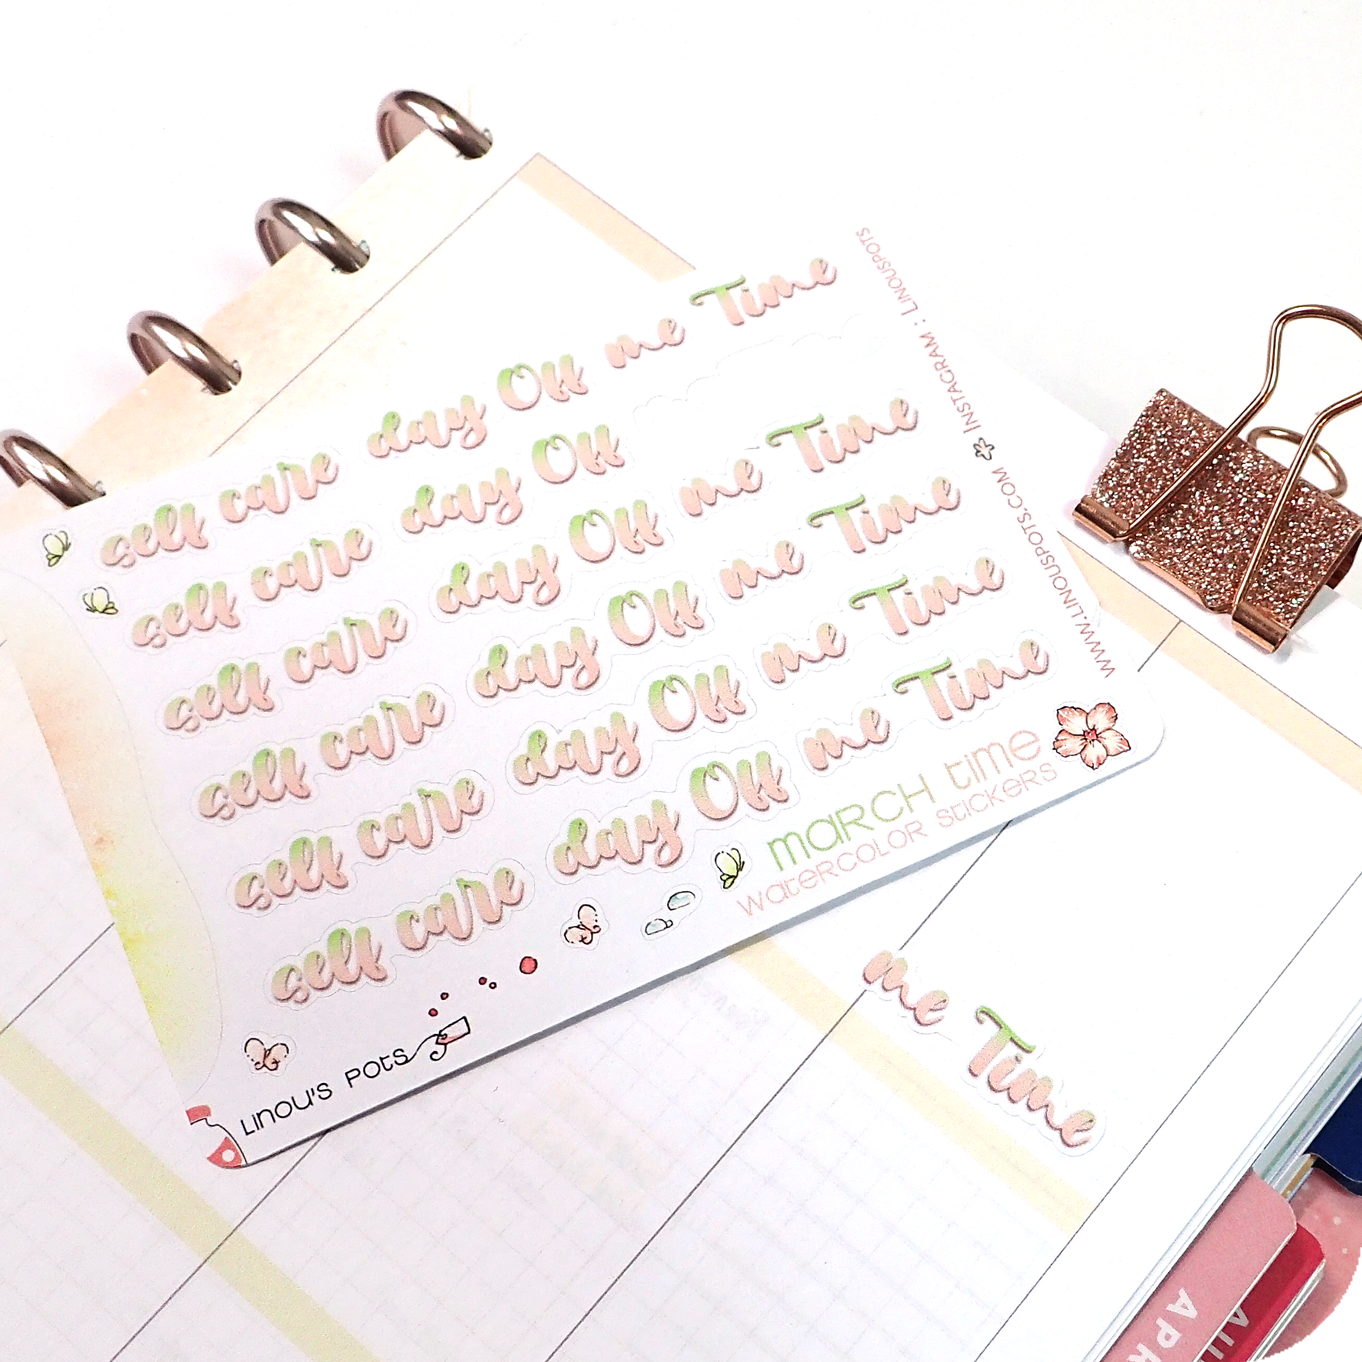 self care day Off me Time
self care day Off
self care day Off me Time
self care day Off me Time
self care day Off me Time
self care day Off me Time
March Time
Watercolor Stickers
Linou's Pots
www.linouspots.com Instagram : Linouspots
me Time
APR
AU